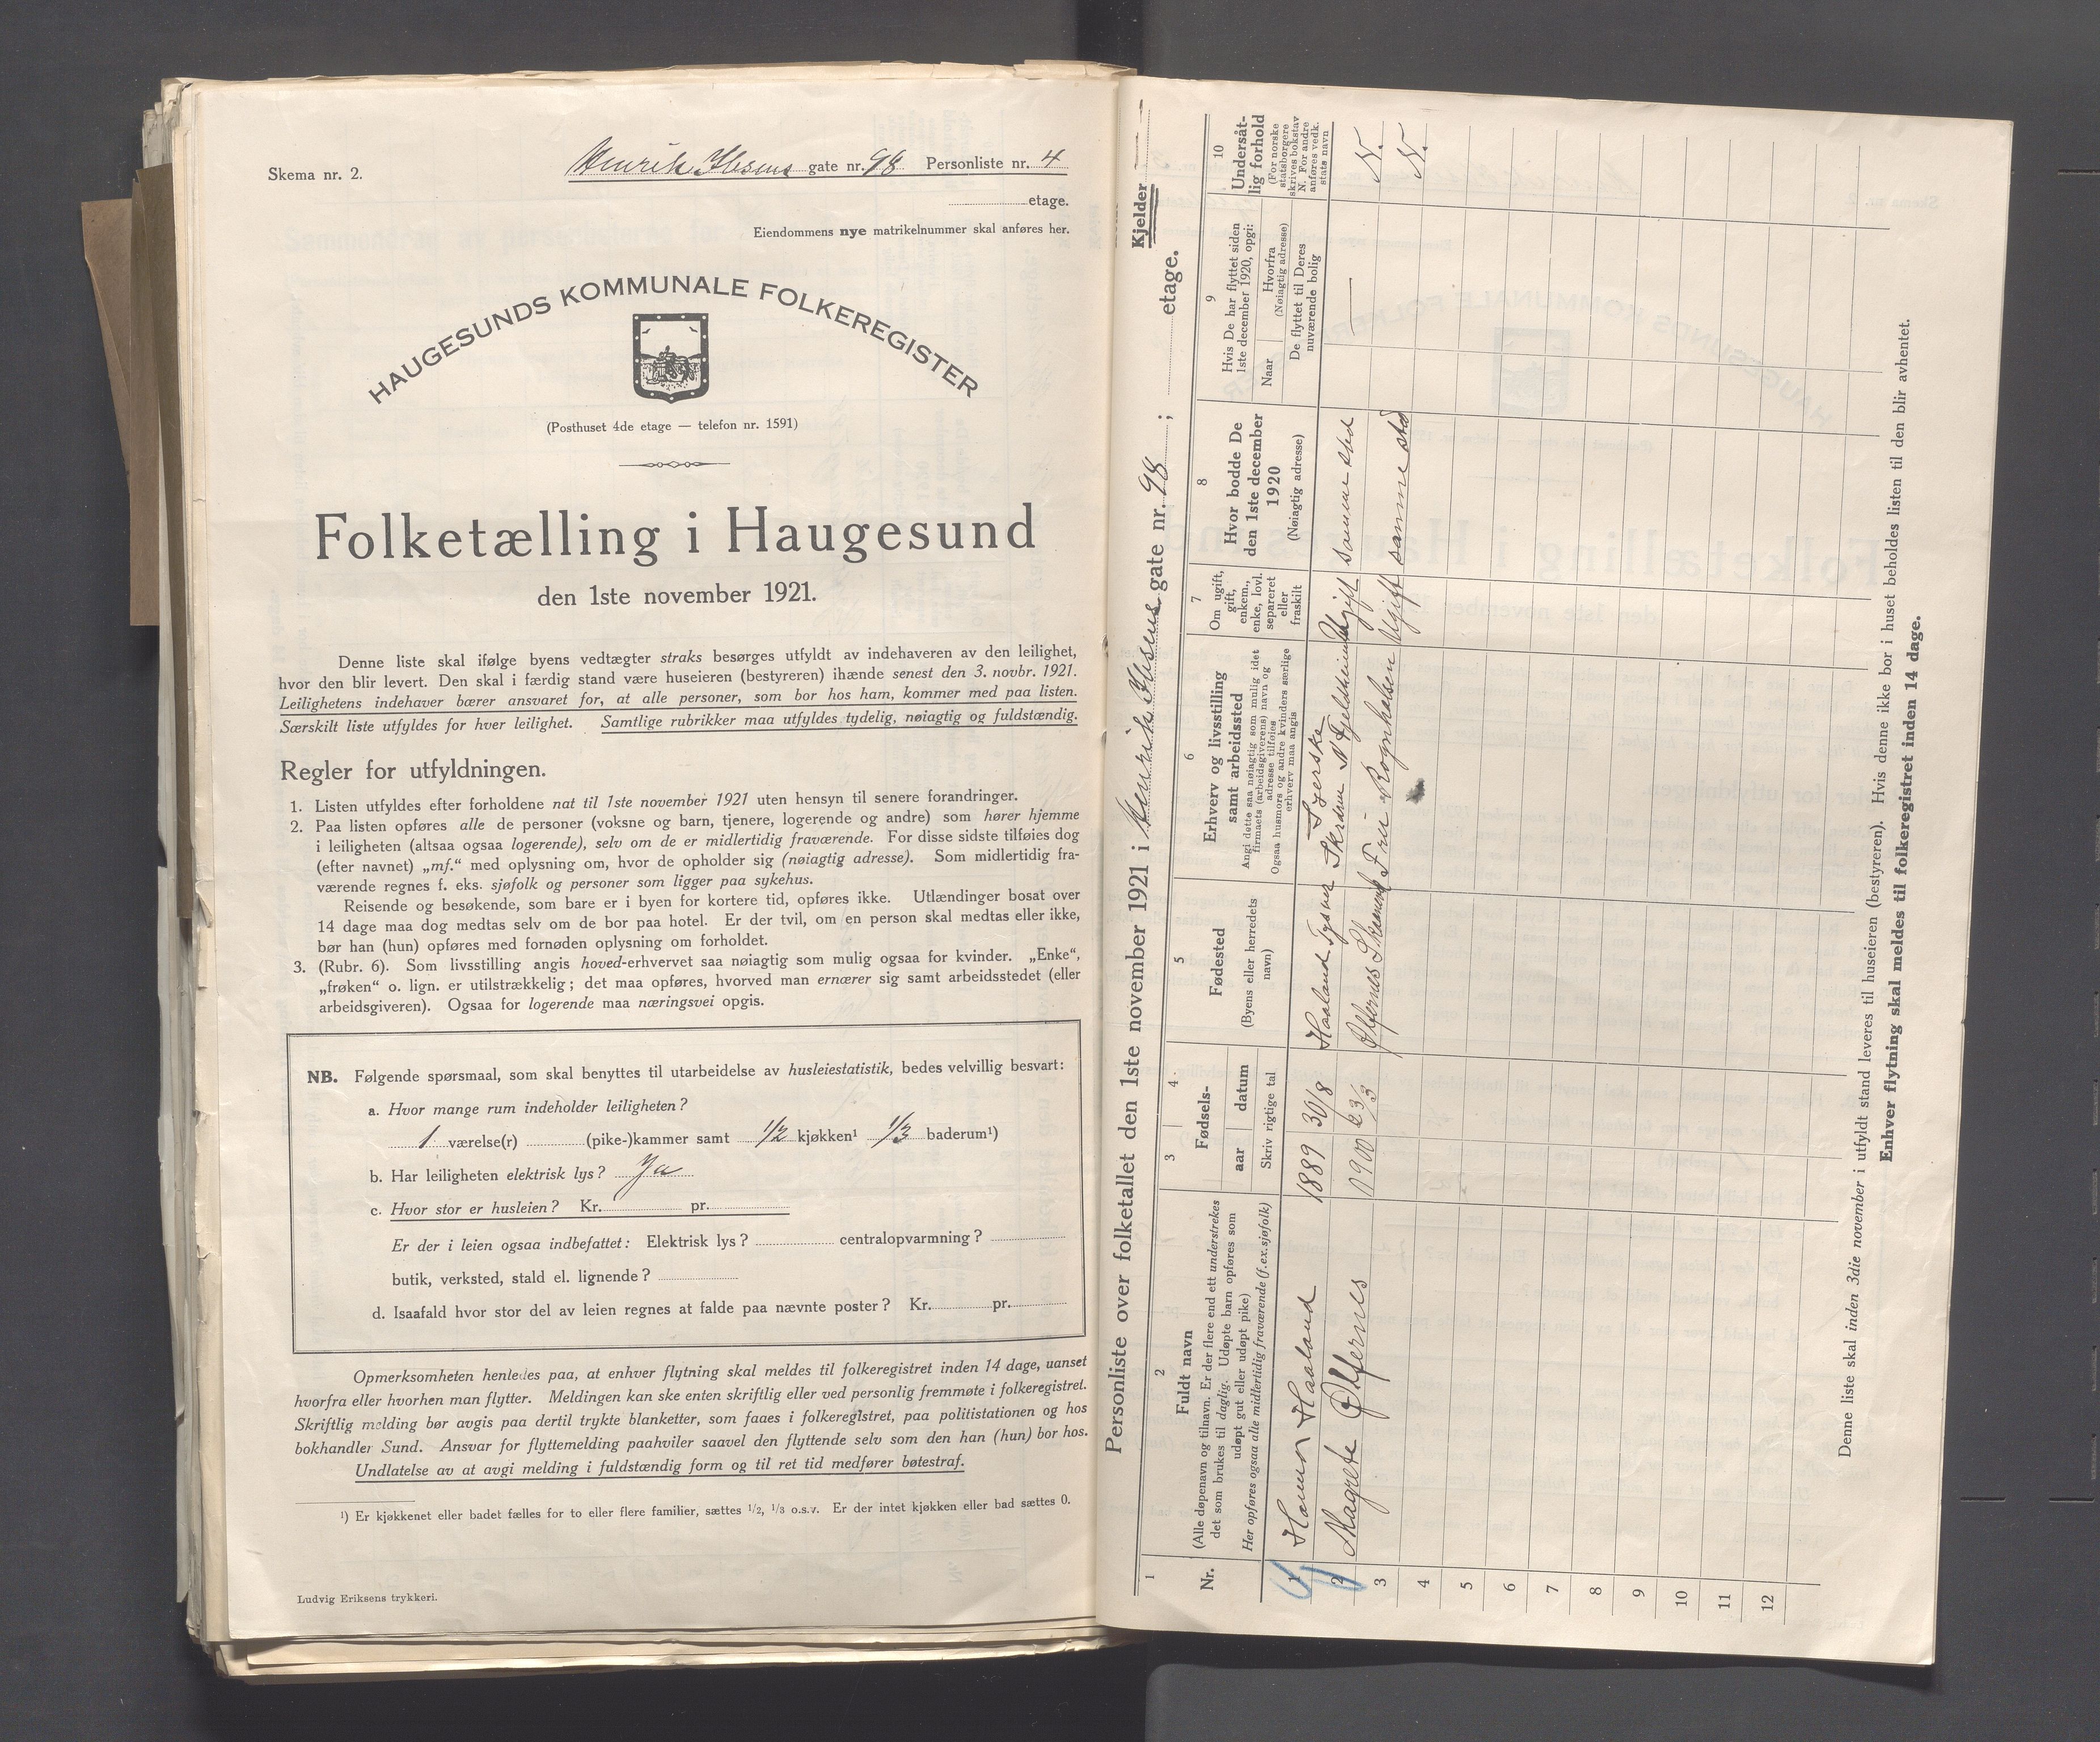 Skema nr. 2.
Henrik Ibsens gate nr. 98 Personliste nr. 4
etage.
Eiendommens nye matrikelnummer skal anføres her.
HAUGESUNDS KOMMUNALE FOLKEREGISTER
(Posthuset 4de etage — telefon nr. 1591)
Folketælling i Haugesund
den 1ste november 1921.
Denne liste skal ifølge byens vedtægter straks besørges utfyldt av indehaveren av den leilighet,
hvor den blir levert. Den skal i færdig stand være huseieren (bestyreren) ihænde senest den 3. novbr. 1921.
Leilighetens indehaver bærer ansvaret for, at alle personer, som bor hos ham, kommer med paa listen.
Særskilt liste utfyldes for hver leilighet. Samtlige rubrikker maa utfyldes tydelig, nøiagtig og fuldstændig.
Regler for utfyldningen.
1. Listen utfyldes efter forholdene nat til 1ste november 1921 uten hensyn til senere forandringer.
2. Paa listen opføres alle de personer (voksne og barn, tjenere, logerende og andre) som hører hjemme
i leiligheten (altsaa ogsaa logerende), selv om de er midlertidig fraværende. For disse sidste tilføies dog
(efter navnet) „mf.“ med oplysning om, hvor de opholder sig (nøiagtig adresse). Som midlertidig fra-
værende regnes f. eks. sjøfolk og personer som ligger paa sykehus.
Reisende og besøkende, som bare er i byen for kortere tid, opføres ikke. Utlændinger bosat over
14 dage maa dog medtas selv om de bor paa hotel. Er der tvil, om en person skal medtas eller ikke,
bør han (hun) opføres med fornøden oplysning om forholdet.
3. (Rubr. 6). Som livsstilling angis hoved-erhvervet saa nøiagtig som mulig ogsaa for kvinder. „Enke“,
„frøken“ o. lign. er utilstrækkelig; det maa opføres, hvorved man ernærer sig samt arbeidsstedet (eller
arbeidsgiveren). Ogsaa for logerende maa næringsvei opgis.
NB. Følgende spørsmaal, som skal benyttes til utarbeidelse av husleiestatistik, bedes velvillig besvart:
a. Hvor mange rum indeholder leiligheten?
1 værelse(r) (pike-)kammer samt 1/2 kjøkken¹ 1/3 baderum¹)
b. Har leiligheten elektrisk lys? Ja
c. Hvor stor er husleien? Kr. pr.
Er der i leien ogsaa indbefattet: Elektrisk lys? centralopvarmning?
butik, verksted, stald el. lignende?
d. Isaafald hvor stor del av leien regnes at falde paa nævnte poster? Kr. pr.
Opmerksomheten henledes paa, at enhver flytning skal meldes til folkeregistret inden 14 dage, uanset
hvorfra eller hvorhen man flytter. Meldingen kan ske enten skriftlig eller ved personlig fremmøte i folkeregistret.
Skriftlig melding bør avgis paa dertil trykte blanketter, som faaes i folkeregistret, paa politistationen og hos
bokhandler Sund. Ansvar for flyttemelding paahviler saavel den flyttende selv som den han (hun) bor hos.
Undlatelse av at avgi melding i fuldstændig form og til ret tid medfører bøtestraf.
¹) Er kjøkkenet eller badet fælles for to eller flere familier, sættes 1/2, 1/3 o.s.v. Er der intet kjøkken eller bad sættes 0.
Ludvig Eriksens trykkeri.
Kjelder
Personliste over folketallet den 1ste november 1921 i Henrik Ibsens gate nr. 98 ; etage.
1 2 3 4 5 6 7 8 9 10
Nr.
Fuldt navn
(Alle døpenavn og tilnavn. Er der flere end ett understrekes
det som brukes til daglig. Udøpte barn opføres som
udøpt gut eller udøpt pike)
Her opføres ogsaa alle midlertidig fraværende (f.ex.sjøfolk)
Fødsels-
aar datum
Skriv rigtige tal
Fødested
(Byens eller herredets
navn)
Erhverv og livsstilling
samt arbeidssted
Angi dette saa nøiagtig som mulig idet
firmaets (arbeidsgiverens) navn og
adresse tilføies
Ogsaa husmors og andre kvinders særlige
erhverv maa angis
Om ugift,
gift,
enkem.,
enke, lovl.
separeret
eller
fraskilt
Hvor bodde De
den 1ste december
1920
(Nøiagtig adresse)
Hvis De har flyttet siden
1ste december 1920, opgi:
Naar
Hvorfra
(Nøiagtig adresse)
De flyttet til Deres
nuværende bolig
Undersåt-
lig forhold
(For norske
statsborgere
skrives bokstav
N. For andre
anføres vedk.
stats navn
1 Haaland 1889 30/8 Haaland Tysvær Ugift samme sted — N.
2 Magrete Ølfernes 1900 23/3 Ølfernes Ugift samme sted N.
3
4
5
6
7
8
9
10
11
12
Denne liste skal inden 3die november i utfyldt stand leveres til huseieren (bestyreren). Hvis denne ikke bor i huset beholdes listen til den blir avhentet.
Enhver flytning skal meldes til folkeregistret inden 14 dage.